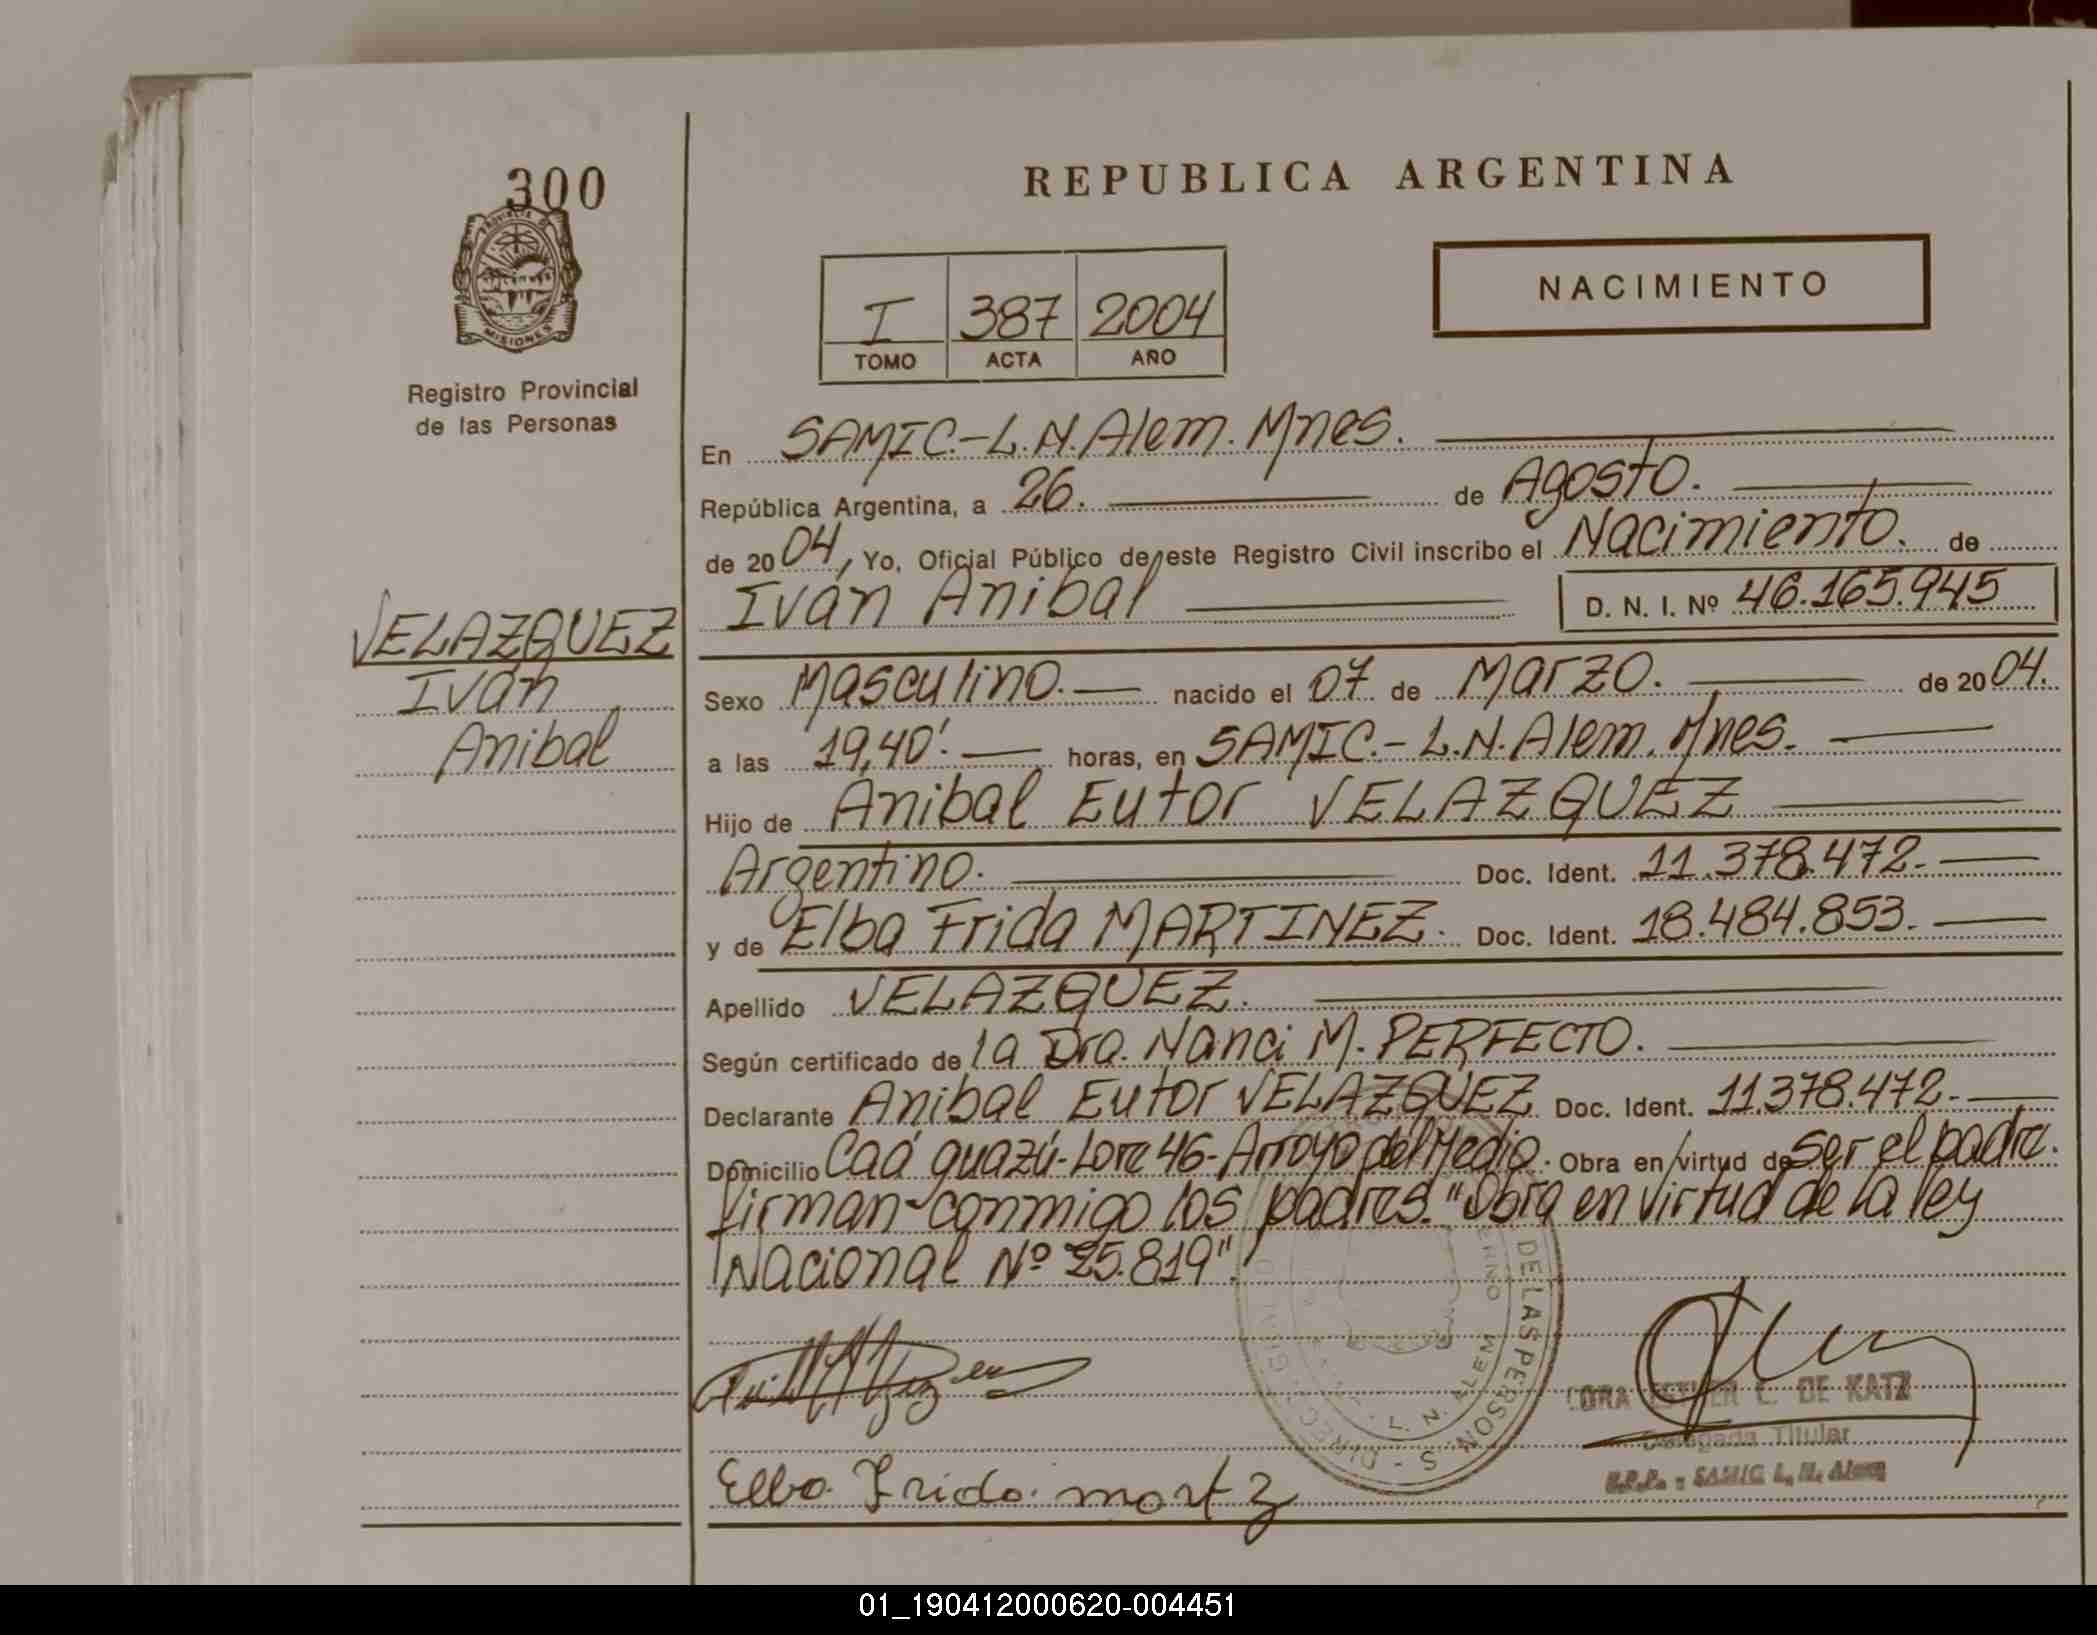 300
PROVINCIA DE
MISIONES
Registro Provincial
de las Personas
REPUBLICA ARGENTINA
NACIMIENTO
I 387 2004
TOMO ACTA AÑO
En SAMIC.-L.N.Alem. Mnes.
República Argentina, a 26. de Agosto.
de 2004, Yo, Oficial Público de este Registro Civil inscribo el Nacimiento. de
Iván Anibal D. N. I. Nº 46.165.945
VELAZQUEZ
Iván
Anibal
Sexo Masculino. nacido el 07 de Marzo. de 2004.
a las 19,40'. horas, en SAMIC.-L.N.Alem. Mnes.
Hijo de Anibal Eutor VELAZQUEZ
Argentino. Doc. Ident. 11.378.472.
y de Elba Frida MARTINEZ. Doc. Ident. 18.484.853.
Apellido VELAZQUEZ.
Según certificado de la Dra. Nanci M. PERFECTO.
Declarante Anibal Eutor VELAZQUEZ Doc. Ident. 11.378.472.
Domicilio Caá guazú-Lote 46-Arroyo del Medio. Obra en virtud de ser el padre.
firman conmigo los padres. "Obra en virtud de la ley
Nacional Nº 25.819".
DE LAS PERSONAS - DIREC
L. N. ALEM
ESTHER C. DE KATZ
Delegada Titular
R.P.P. - SAMIC L. N. Alem
Elba Frida martz
01_190412000620-004451